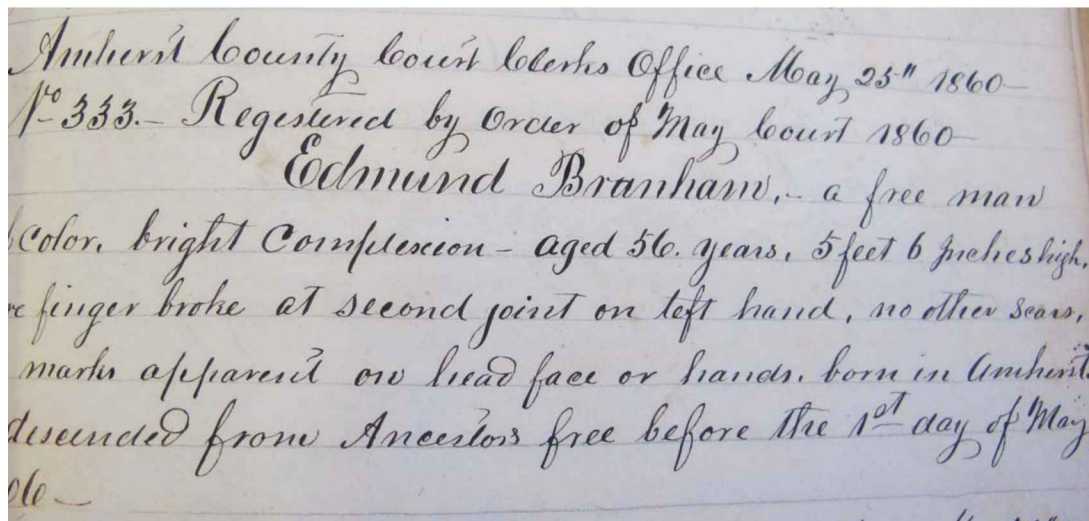 Amherst County Court Clerks Office May 25" 1860—
No 333.— Registered by Order of May Court 1860—
Edmund Branham,- a free man
color, bright Complexion – aged 56. years, 5 feet 6 Inches high,
finger broke at second joint on left hand, no other scars,
marks apparent on head face or hands. born in Amherst
descended from Ancestors free before the 1st day of May
06—